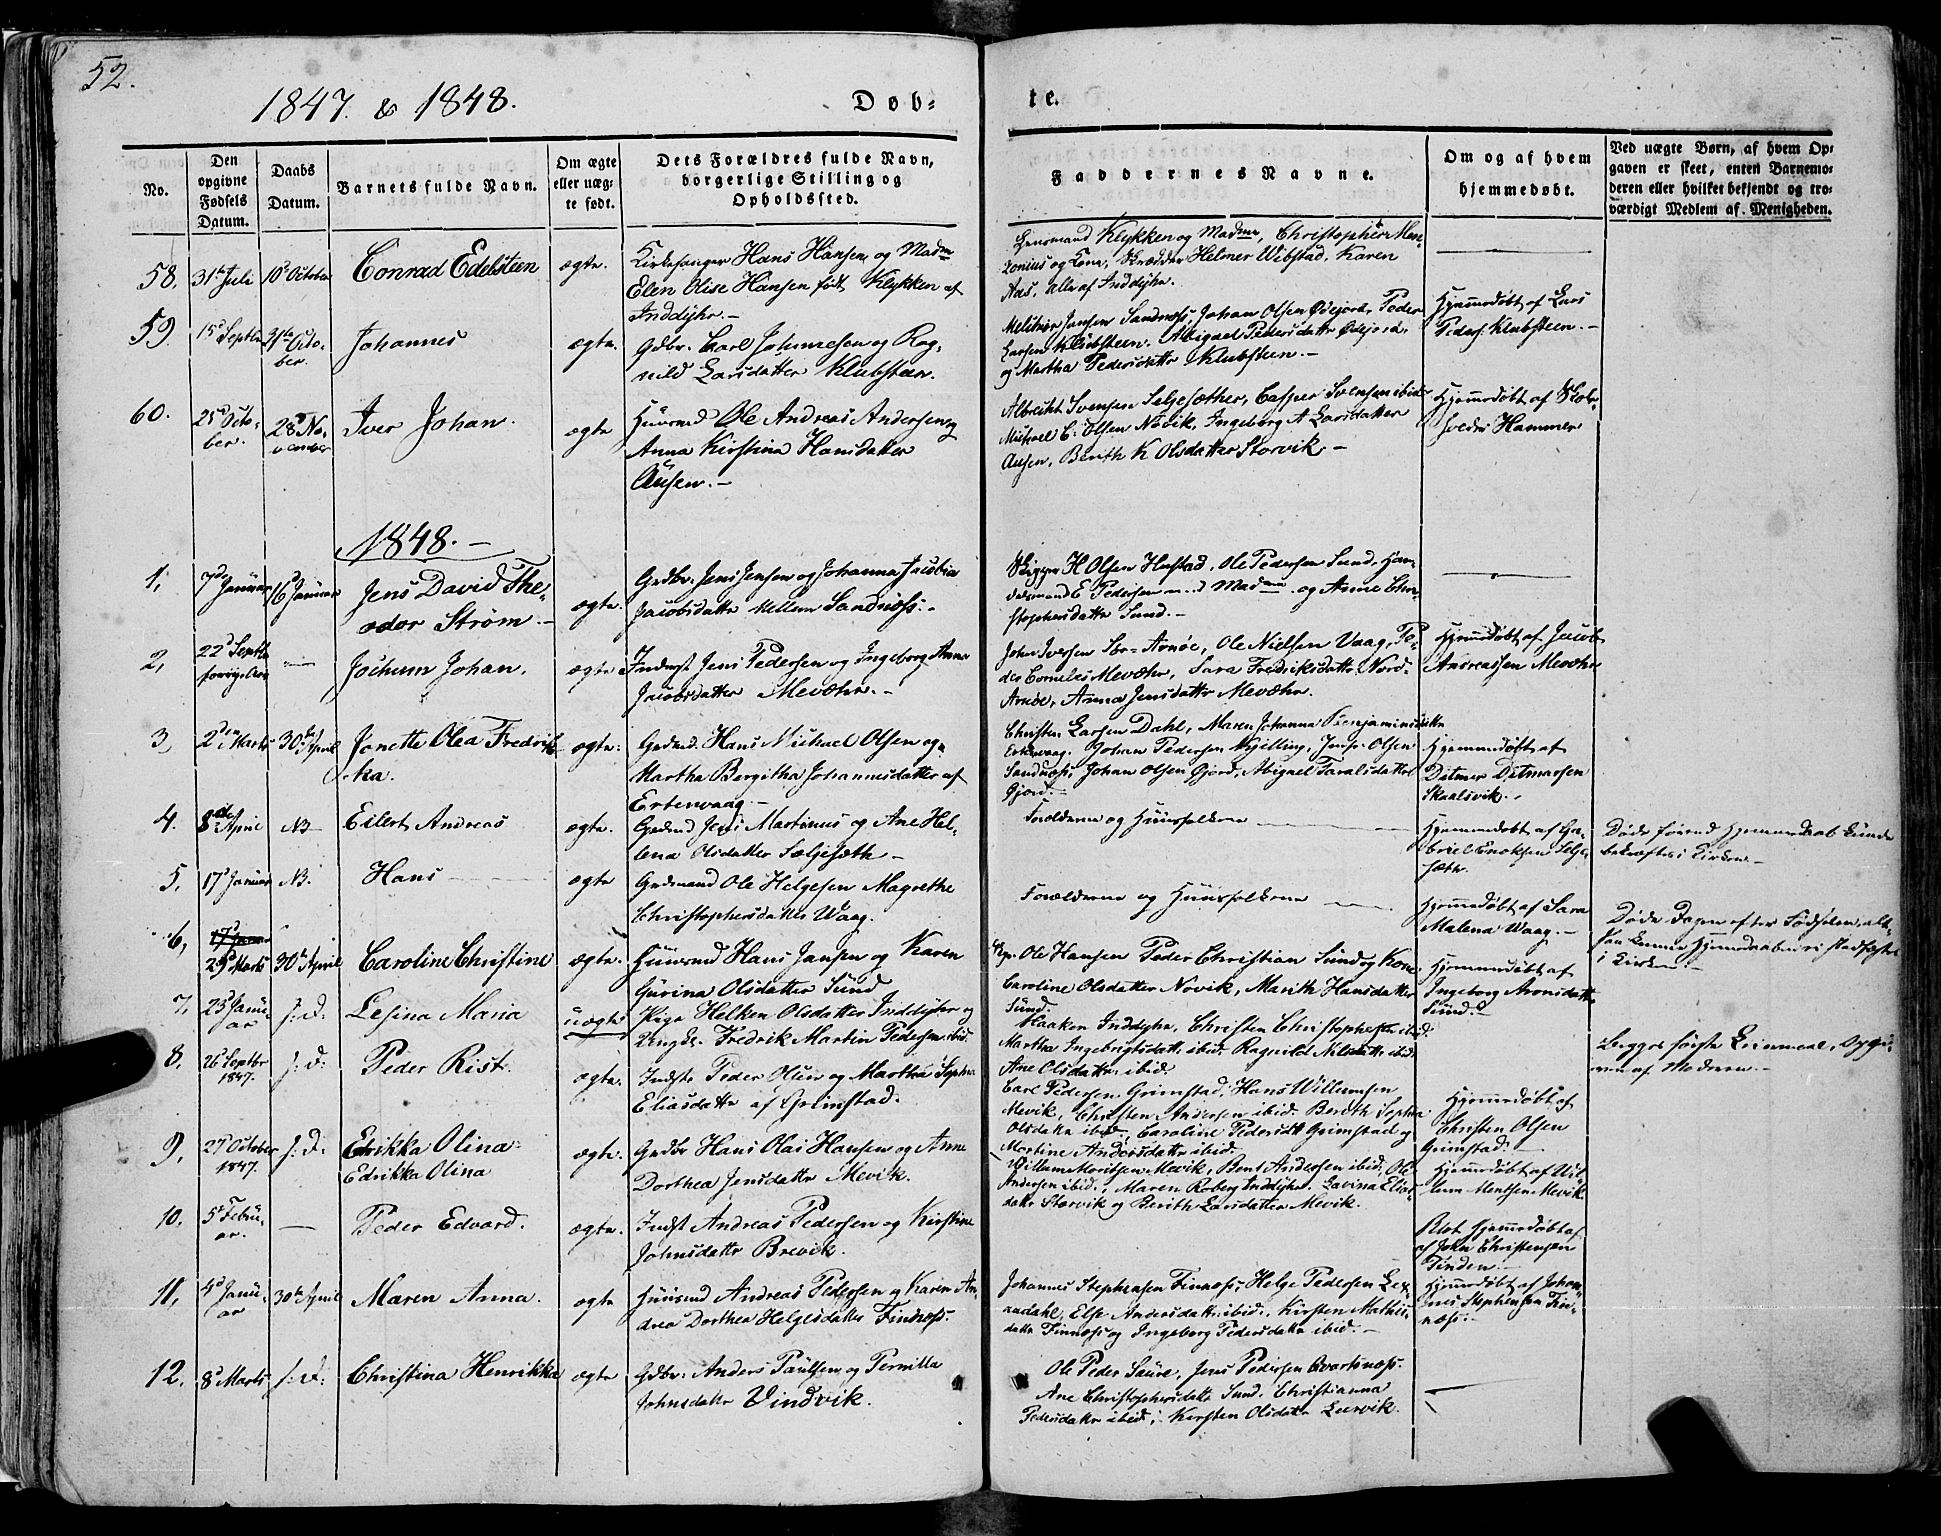 52.
1847. & 1848.
Døb-
te.
No.
Den
opgivne
Fødsels
Datum.
Daabs
Datum.
Barnets fulde Navn.
Om ægte
eller uæg-
te født.
Dets Forældres fulde Navn,
borgerlige Stilling og
Opholdssted.
Faddernes Navne.
Om og af hvem
hjemmedøbt.
Ved uægte Børn, af hvem Op-
gaven er skeet, enten Barnemo-
deren eller hvilket bekjendt og tro-
værdigt Medlem af Menigheden.
58. 31te Juli 10d October Conrad Edelsteen ægte.
Kirkesanger Hans Hansen og Madm
Elen Olise Hansen født Klykken af
Inddyhr.-
Lensmand Klykken og Madme, Christopher
og Kone, Skrædder Helmer Wibstad, Karen
Aas, alle af Inddyhr.
59. 15d Septbr 31te Octo-
ber.
Johannes ægte.
Gdbr. Carl Johnnesen og Rag-
nild Larsdatter Klubsteen.
Jansen Sandnæss, Johan Olsen Ødejord, Peder
Larsen Klubsteen. Abigael Pedersdattr Ødejord,
og Martha Pedersdattr Klubsteen.-
Hjemmedøbt af Lars
Peders. Klubsteen.-
60. 25d Octo-
ber. 28d No-
vember
Iver Johan. ægte
Huusmd Ole Andreas Andersen og
Anna Kirstina Hansdatter
Ausen.-
Albrecht Svensen Seljesæther, Casper Svensen ibid.
Michael C. Olsen Növik, Ingeborg A Larsdatter
Ausen, Berith K Olsdatter Storvik.-
Hjemmedøbt af
Hammer
1848.-
1, 7de Januar 16 Januar Jens David The-
odor Strøm.- ægte.
Gadbr. Jens Jensen og Johanna Jacobia
Jacobsdattr Mellem Sandnæss.-
Skipper H Olsen Hustad, Ole Pedersen Sund, Han-
delsmand E Pedersen med Madme og Anne Chri-
stophersdattr Sund.-
2, 22d Septbr
forrige Aar
Jochum Johan. ægte
Inderst Jens Pedersen og Ingeborg Anna
Jacobsdatter Mevæhr.-
John Iversen Sbr- Arnöe, Ole Nielsen Vaag, Pe-
der Cornelis Mevæhr, Sara Fredriksdattr Nord-
Arnöe, Anna Jensdattr Mevæhr.
Hjemmedøbt af Jacob
Andreassen Mevæhr
3, 2den Marts 30te April Jonette Olea Fredrik-
ka. ægte.
Gadmd. Hans Michael Olsen og
Martha Bergitha Johannesdatter af
Ertenvaag.-
Christen Larsen Dahl, Maren Johanna Benjaminsdattr
Ertenvaag. Johan Pedersen Kjelling, Jens Olsen
Sandnæss, Johan Olsen Gjord, Abigael Taralsdatter
Gjord.-
Hjemmedøbt af
Ditmer Ditmarssen
Skaalsvik.
4. 8de April NB Eilert Andreas ægte.
Gadmd Jens Martinus og Ane Hel-
lena Olsdatter Sæljesæth-
Forældrene og Huusfolkene
Hjemmedøbt af Ga-
briel Enoksen Selje-
sæter.
Døde førend Hjemmedaab kunde
bekræftes i Kirken.-
5. 17d Januar NB. Hans ægte
Gadmand Ole Helgesen Magrethe
Christophersdatter Waag.
Forældrene og Huusfolkene
Hjemmedøbt af Sara
Malena Waag.-
Døde Dagen efter Fødselen, alt-
saa kunne Hjemmedaaben ei stadfæstes
i Kirken.-
6, 17d Januar
29d Marts 30te April Caroline Christine ægte.
Huusmd Hans Jansen og Karen
Gurina Olsdatter Sund
Ole Hansen Peder Christian Sund og Kone
Caroline Olsdatter Novik, Marith Hansdatter
Sund.
Hjemmedøbt af
Ingeborg Aronsdattr
Sund.
7, 23d Janu-
ar J.D. Lesina Maria uægte
Pige Helken Olsdatter Inddyhr og
Ungk. Fredrik Martin Pedersen ibid.
Haaken Inddyhr, Christen Christophersen ibid.
Martha Ingebrigtsdattr ibid. Ragnild Nilsdattr ibid.
Ane Olsdattr ibid.
Begges første Leiermaal, Opgi-
ven af Moderen.-
8. 26 Septbr
1847. J.D. Peder Rist. ægte.
Indst Peder Olsen og Martha Sophia
Eliasdattr af Grimstad.
Carl Pedersen Grimstad, Hans Willumsen
Mevik, Christen Andersen ibid. Berith Sophia
Olsdattr ibid, Caroline Pedersdtt Grimstad og
Martine Andersdattr ibid.
Hjemmedøbt af
Christen Olsen
Grimstad.-
9, 27 October
1847. J.D. Edrikka Olina
Edrikka Olina ægte.
Gadbr Hans Olai Hansen og Anne
Dorthea Jensdattr Mevik.
Willum Moritsen Mevik, Bent Andersen ibid. Ole
Andersen ibid., Maren Roberg Inddyhr. Lavina Elias-
dattr Storvik og Berith Larsdatter Mevik.
Hjemmedøbt af Wil-
lum Mentsen Mevik
10. 5d Febru-
ar. - Peder Edvard. ægte.
Indst Andreas Pedersen og Kirstine
Johnsdattr Brevik.
Blot Hjemmedøbt af
af John Christensen
Tinden.-
11, 4d Janu-
ar 30te April Maren Anna. ægte
Huusmd Andreas Pedersen og Karen An-
drea Dorthea Helgesdatter Finnæss.
Johannes Stephensen Finnæss, Helge Pedersen
Else Andersdattr ibid., Kirsten Mathis-
dattr Finnæss og Ingeborg Pedersdattr ibid.-
Hjemmedøbt af Johan-
nes Stephensen Fin-
næss.
12. 8d Marts J.D. Christina Henrikka ægte
Gdbr. Anders Paulsen og Pernilla
Johnsdattr Vindvik.
Ole Peder Saure, Jens Pedersen Qvartnæss.
Ane Christophersdattr Sund, Christianna
Pedersdattr ibid, Kirsten Olsdattr Leervik.